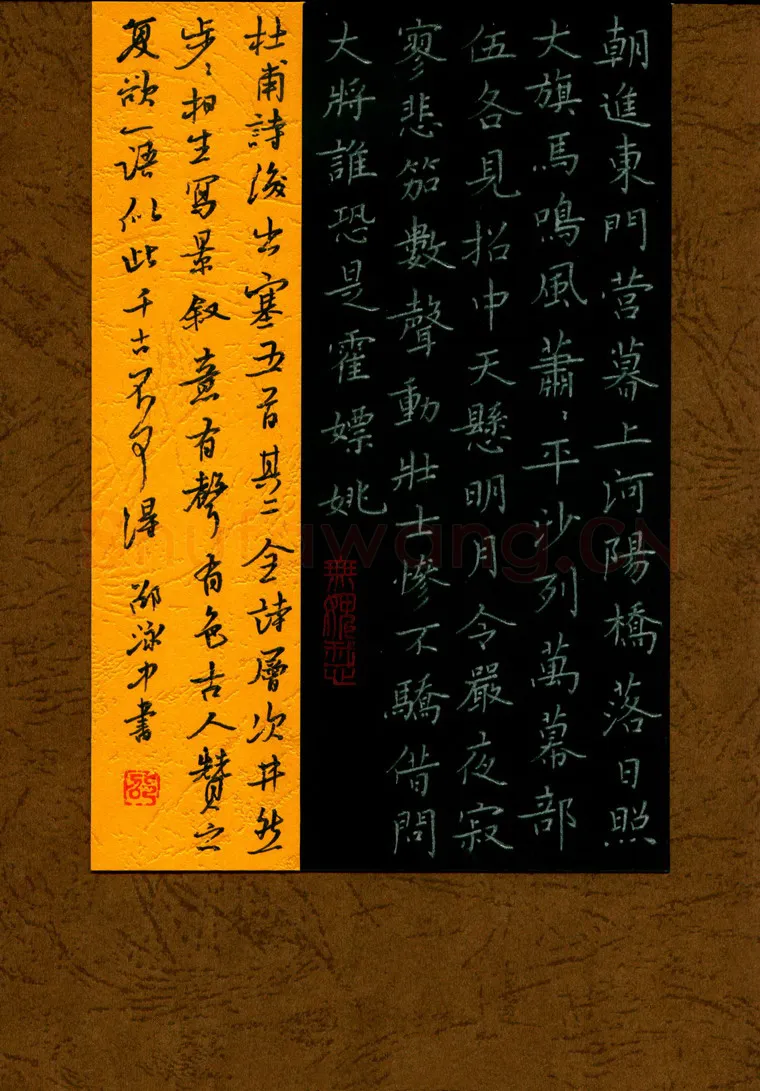 朝進東門營暮上河陽橋落日照
大旗馬鳴風蕭〻平沙列萬幕部
伍各見招中天懸明月令嚴夜寂
寥悲笳數聲動壯士慘不驕借問
大將誰恐是霍嫖姚
杜甫詩後出塞五首其二全詩層次井然
步〻相生寫景叙意有聲有色古人贊之
复欲一語似此千古不可得 邵泳中書
邵